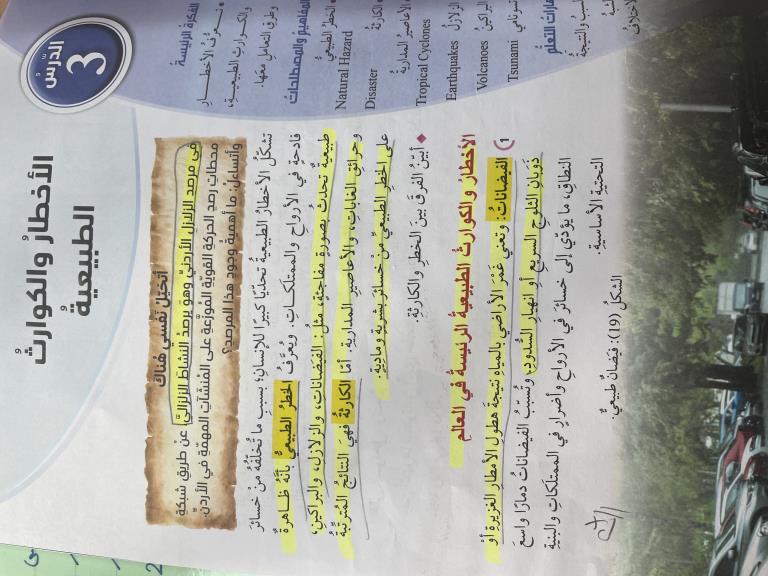 الدّرسُ
3
الأخطارُ والكوارثُ
الطبيعيةُ
الفكرة الرئيسةُ
تعرُّفُ الأخطارِ
والكوارثِ الطبيعيةِ،
وطرقِ التعاملِ معَها.
المفاهيمُ والمصطلحاتُ
الخطرُ الطبيعيُّ
Natural Hazard
الكارثةُ
Disaster
الأعاصيرُ المداريةُ
Tropical Cyclones
الزلازلُ
Earthquakes
البراكينُ
Volcanoes
تسونامي
Tsunami
مهاراتُ التعلُّمِ
السببُ والنتيجةُ
أتخيَّلُ نفسي هُناكَ
في مرصدِ الزلازلِ الأردنيِّ وهوَ يرصدُ النشاطَ الزلزاليَّ، عنْ طريقِ شبكةِ
محطاتِ رصدِ الحركةِ القويّةِ الموزّعةِ على المُنشَآتِ المهمّةِ في الأردنِّ.
وأتساءلُ: ما أهميةُ وجودِ هذا المرصدِ؟
تشكّلُ الأخطارُ الطبيعيةُ تحدّيًا كبيرًا للإنسانِ؛ بسببِ ما تُخلّفُهُ منْ خسائرَ
فادحةٍ في الأرواحِ والممتلكاتِ. ويُعرَّفُ الخطرُ الطبيعيُّ بأنّهُ ظاهرةٌ
طبيعيةٌ تحدثُ بصورةٍ مفاجئةٍ، مثلُ: الفيضاناتِ، والزلازلِ، والبراكينِ،
وحرائقِ الغاباتِ، والأعاصيرِ المداريةِ. أمّا الكارثةُ فهيَ النتائجُ المُترتّبةُ
على الخطرِ الطبيعيِّ منْ خسائرَ بشريةٍ وماديةٍ.
◆ أُبيّنُ الفرقَ بينَ الخطرِ والكارثةِ.
الأخطارُ والكوارثُ الطبيعيةُ الرئيسةُ في العالمِ
1) الفيضاناتُ: وتعني غمْرَ الأراضي بالمياهِ نتيجةَ هطولِ الأمطارِ الغزيرةِ أوْ
ذوبانِ الثلوجِ السريعِ أوِ انهيارِ السُّدودِ، وتُسبّبُ الفيضاناتُ دمارًا واسعَ
النطاقِ، ما يؤدّي إلى خسائرَ في الأرواحِ وأضرارٍ في الممتلكاتِ والبنيةِ
التحتيةِ الأساسيةِ.
الشكل (19): فيضانٌ طبيعيٌّ.